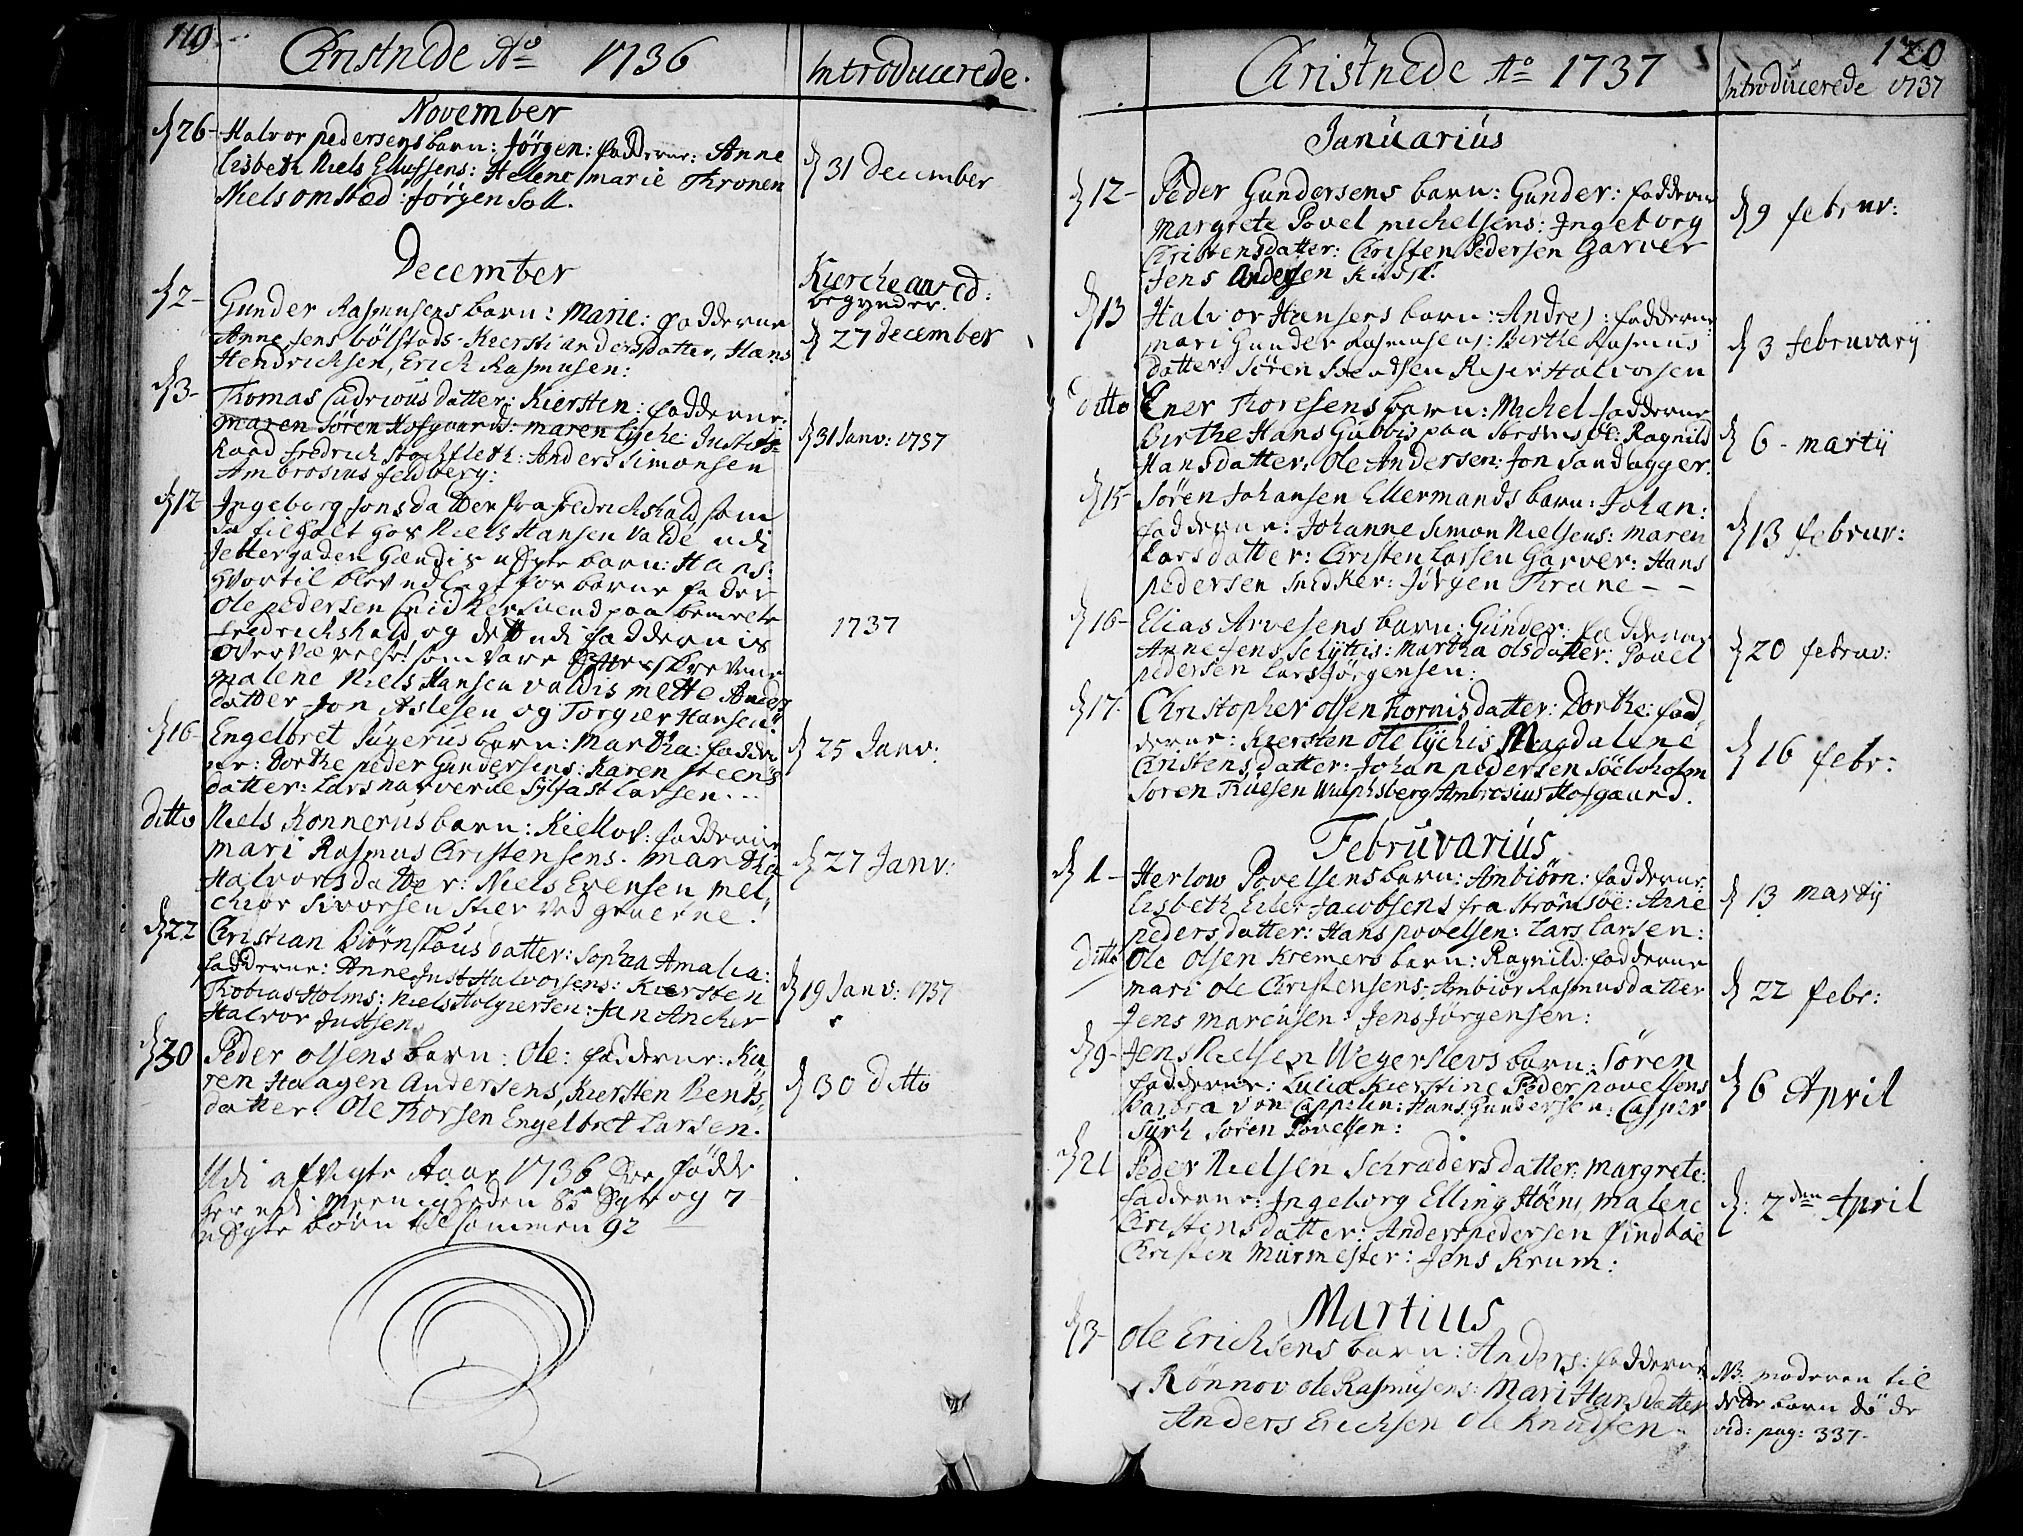 119
Christnede Ao 1736
Introducerede.
November
d 26 - Halvor pedersens barn: Jörgen: fadderne: Anne
Lisbeth Niels Ellufsens: Helene marie Thronen
Niels omsted: Jörgen Soll.
d 31 December
December
Kierche
begynder.
d 2 - Gunder Rasmusens barn: Marie: fadderne
Anne Jens bölstads - Kiersti andersdatter, Hans
Hendrichsen, Erich Rasmusen:
d 27 december
d 3 - Thomas datter: Kiersten: fadderne:
maren Sören Hofgaards: maren lyche: Justits-
Raad fredrich Stochfleth: Anders Simonsen
Ambrosius feldberg:
d 31 Janv: 1737
d 12 Ingeborg Jonsdatter fra fredrichshald som
da tilholt hos Niels Hansen Valde udi
gaden Hendis uægte barn: Hans:
Hvortil blev udlagt for barne fader
Ole pedersen Snidker svend paa bemelte
fredrichshald og dett udi faddernis
overværelse som vare efterskrevne
malene Niels Hansen valdis mette Anders
datter Jon Aslesen og Torgier Hansen
1737
d 16 - Engelbret barn: Martha: fadder
ne: Dorthe peder Gundersens: Karen Steens
datter: Lars narverue Sylfast Larsen - -
d 25 Janv:
ditto Niels Konnerus barn: Kiellov: fadderne
mari Rasmus Christensens. martha
Halvorsdatter: Niels Evensen mel,
chior Sivorsen Stier ved gruerne:
d 27 Janv:
d 22 Christian Biörnslous datter: Sophia Amalia:
fadderne: Anne Just Halvorsens: Kiersten
Thobias Holms: Niels Holgiersen: Jan Ancher
Halvor Justsen
d 19 Janv: 1737
d 30 Peder olsens barn: Ole: fadderne: Ka
ren Haagen Andersens, Kiersten Bents,
datter: Ole Thorsen Engelbret Larsen.
d 30 ditto
Udi afvigte Aar 1736 ere födde
her udi Meenigheden 85 Ægte og 7
uægte börn tilsammen 92
120
Christnede Ao 1737
Introducerede 1737
Januarius
d 12 - Peder Gundersens barn: Gunder: fadderne
Margrete Povel michelsens: Ingeborg
Christensdatter: Christen Pedersen Garver
Jens Andersen Kudsk:
d 9 februv:
d 13 Halvor Hansens barn: Andres: fadderne
mari Gunder Rasmusens: Birthe Rasmus
datter: Sören Sivertsen Rejer Halvorsen
d 3 februvarij
Ditto Ener Thoresens barn: Michel fadderne
Birthe Hans Gubbis paa Strömsöe: Ragnild
Hansdatter: Ole Andersen: Jon Sandagger.
d 6 - martij
d 15 - Sören Johansen Ellermands barn: Johan:
fadderne: Johanne Simon Nielsens: maren
Larsdatter: Christen Larsen Garver: Hans
pedersen Snidker: Jörgen Thrane - -
d 13 februv:
d 16 - Elias Arvesens barn: Gunder: fadderne
Anne Jens Schyttis: Martha olsdatter: Povel
pedersen Lars Jörgensen:
d 20 februv:
d 17 - Christopher olsen Kornis datter: Dorthe: fad
derne: Kiersten ole lychis Magdalene
Christensdatter: Johan pedersen Söeboholm
Sören Thuesen Wulphsberg Ambrosius Hofgaard.
d 16 febr:
Februvarius
d 1 - Herlow Povelsens barn: Anbiörn: fadderne:
Lisbeth Eiler Jacobsens fra Strömsöe: Anne
pedersdatter: Hans povelsen: Lars Larsen:
d 13 martij
ditto Ole Olsen Kremers barn: Ragnild: fadderne
mari ole Christensens: Anbiör Rasmusdatter
Jens marcusen: Jens Jörgensen:
d 22 febr:
d 9 - Jens Nielsen Wegerslevs barn: Sören
fadderne: Lucia Kierstine Peder povelsens
Barbra von Cappelen: Hans Gundersen: Casper
Syrh Sören Povelsen:
d 6 April
d 21 Peder Nielsen Schraders datter: margrete:
fadderne: Ingeborg Elling Höens, malene
Christensdatter: Anders pedersen Vindhöe
Christen Murmester: Jens Krum:
d: 2den April
Martius
d 3 - Ole Erichsens barn: Anders: fadderne
Rönnov ole Rasmusens: Mari Hansdatter
Anders Erichsen Ole Knudsen -
NB: moderen til
dette barn döde
vid: pag: 337 -